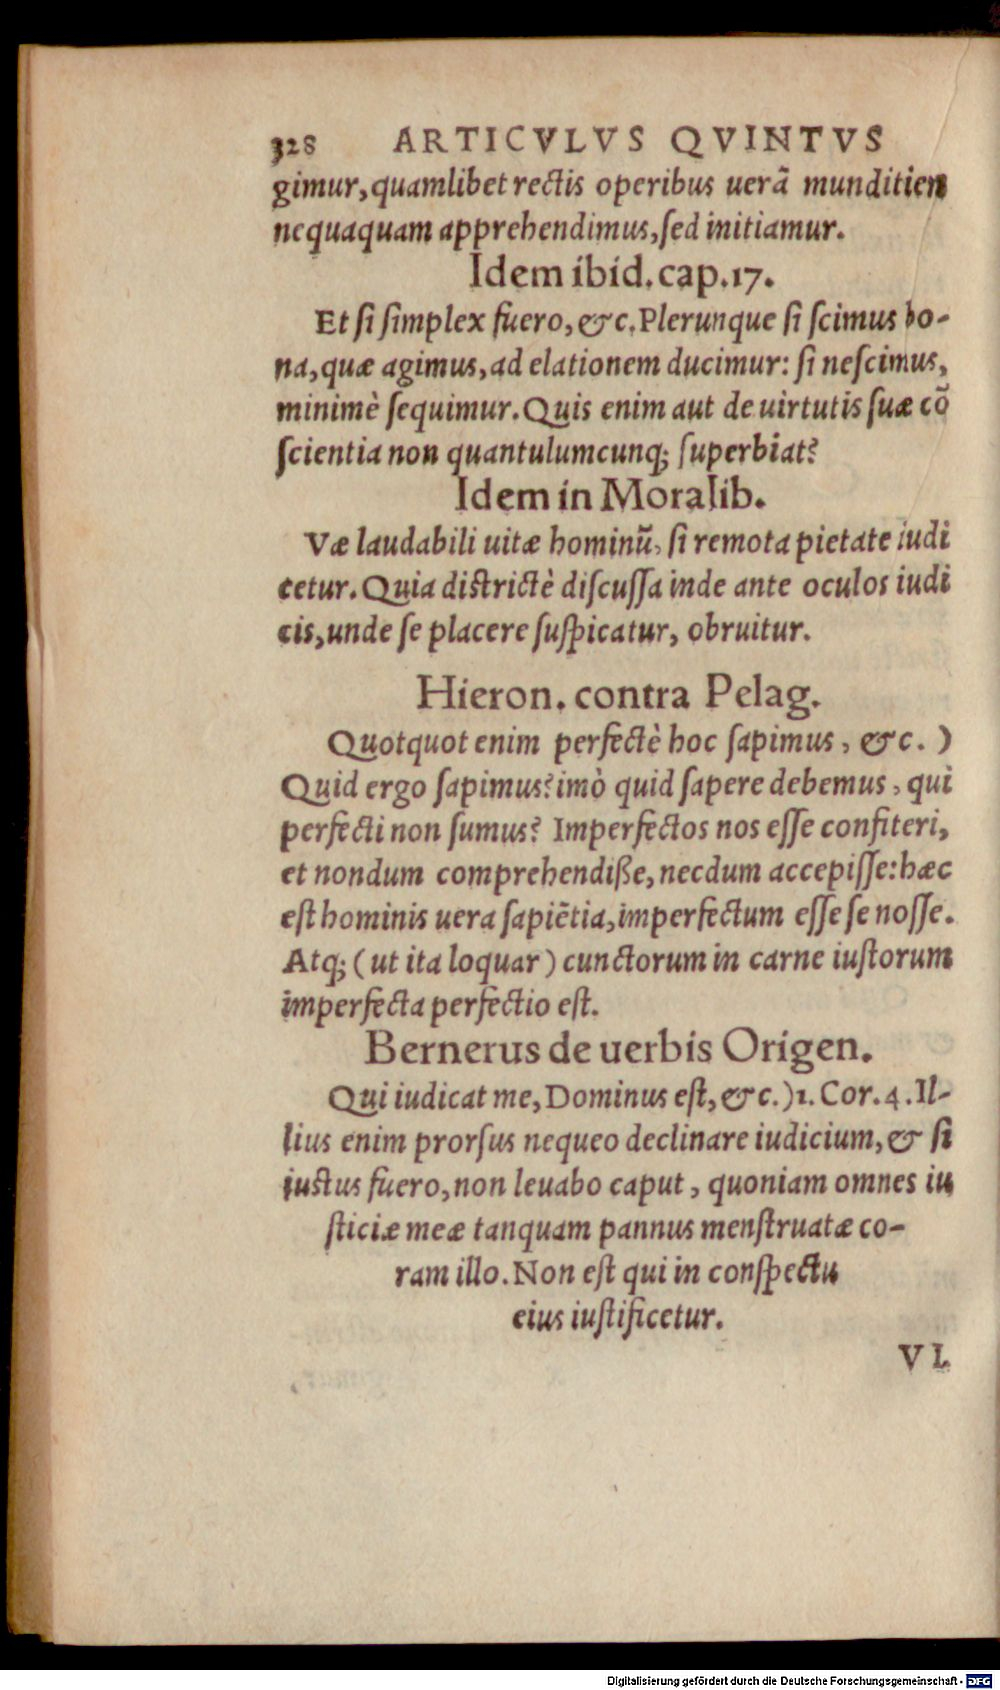 328 ARTICVLVS QVINTVS
gimur, quamlibet rectis operibus uerã munditiem
nequaquam apprehendimus, ſed initiamur.
Idem ibid. cap. 17.
Et ſi ſimplex fuero, &c. Plerunque ſi ſcimus bo-
na, quæ agimus, ad elationem ducimur: ſi neſcimus,
minimè ſequimur. Quis enim aut de uirtutis ſuæ cõ
ſcientia non quantulumcunq; ſuperbiat?
Idem in Moralib.
Væ laudabili uitæ hominũ, ſi remota pietate iudi
cetur. Quia districtè diſcuſſa inde ante oculos iudi
cis, unde ſe placere ſuſpicatur, obruitur.
Hieron. contra Pelag.
Quotquot enim perfectè hoc ſapimus, &c. )
Quid ergo ſapimus? imò quid ſapere debemus, qui
perfecti non ſumus? Imperfectos nos eſſe confiteri,
et nondum comprehendiße, necdum accepiſſe: hæc
eſt hominis uera ſapiẽtia, imperfectum eſſe ſe noſſe.
Atq; (ut ita loquar) cunctorum in carne iuſtorum
imperfecta perfectio eſt.
Bernerus de uerbis Origen.
Qui iudicat me, Dominus eſt, &c.) 1. Cor. 4. Il-
lius enim prorſus nequeo declinare iudicium, & ſi
iustus fuero, non leuabo caput, quoniam omnes iu
ſticiæ meæ tanquam pannus menſtruatæ co-
ram illo. Non eſt qui in conſpectu
eius iuſtificetur.
VI.
Digitalisierung gefördert durch die Deutsche Forschungsgemeinschaft - DFG